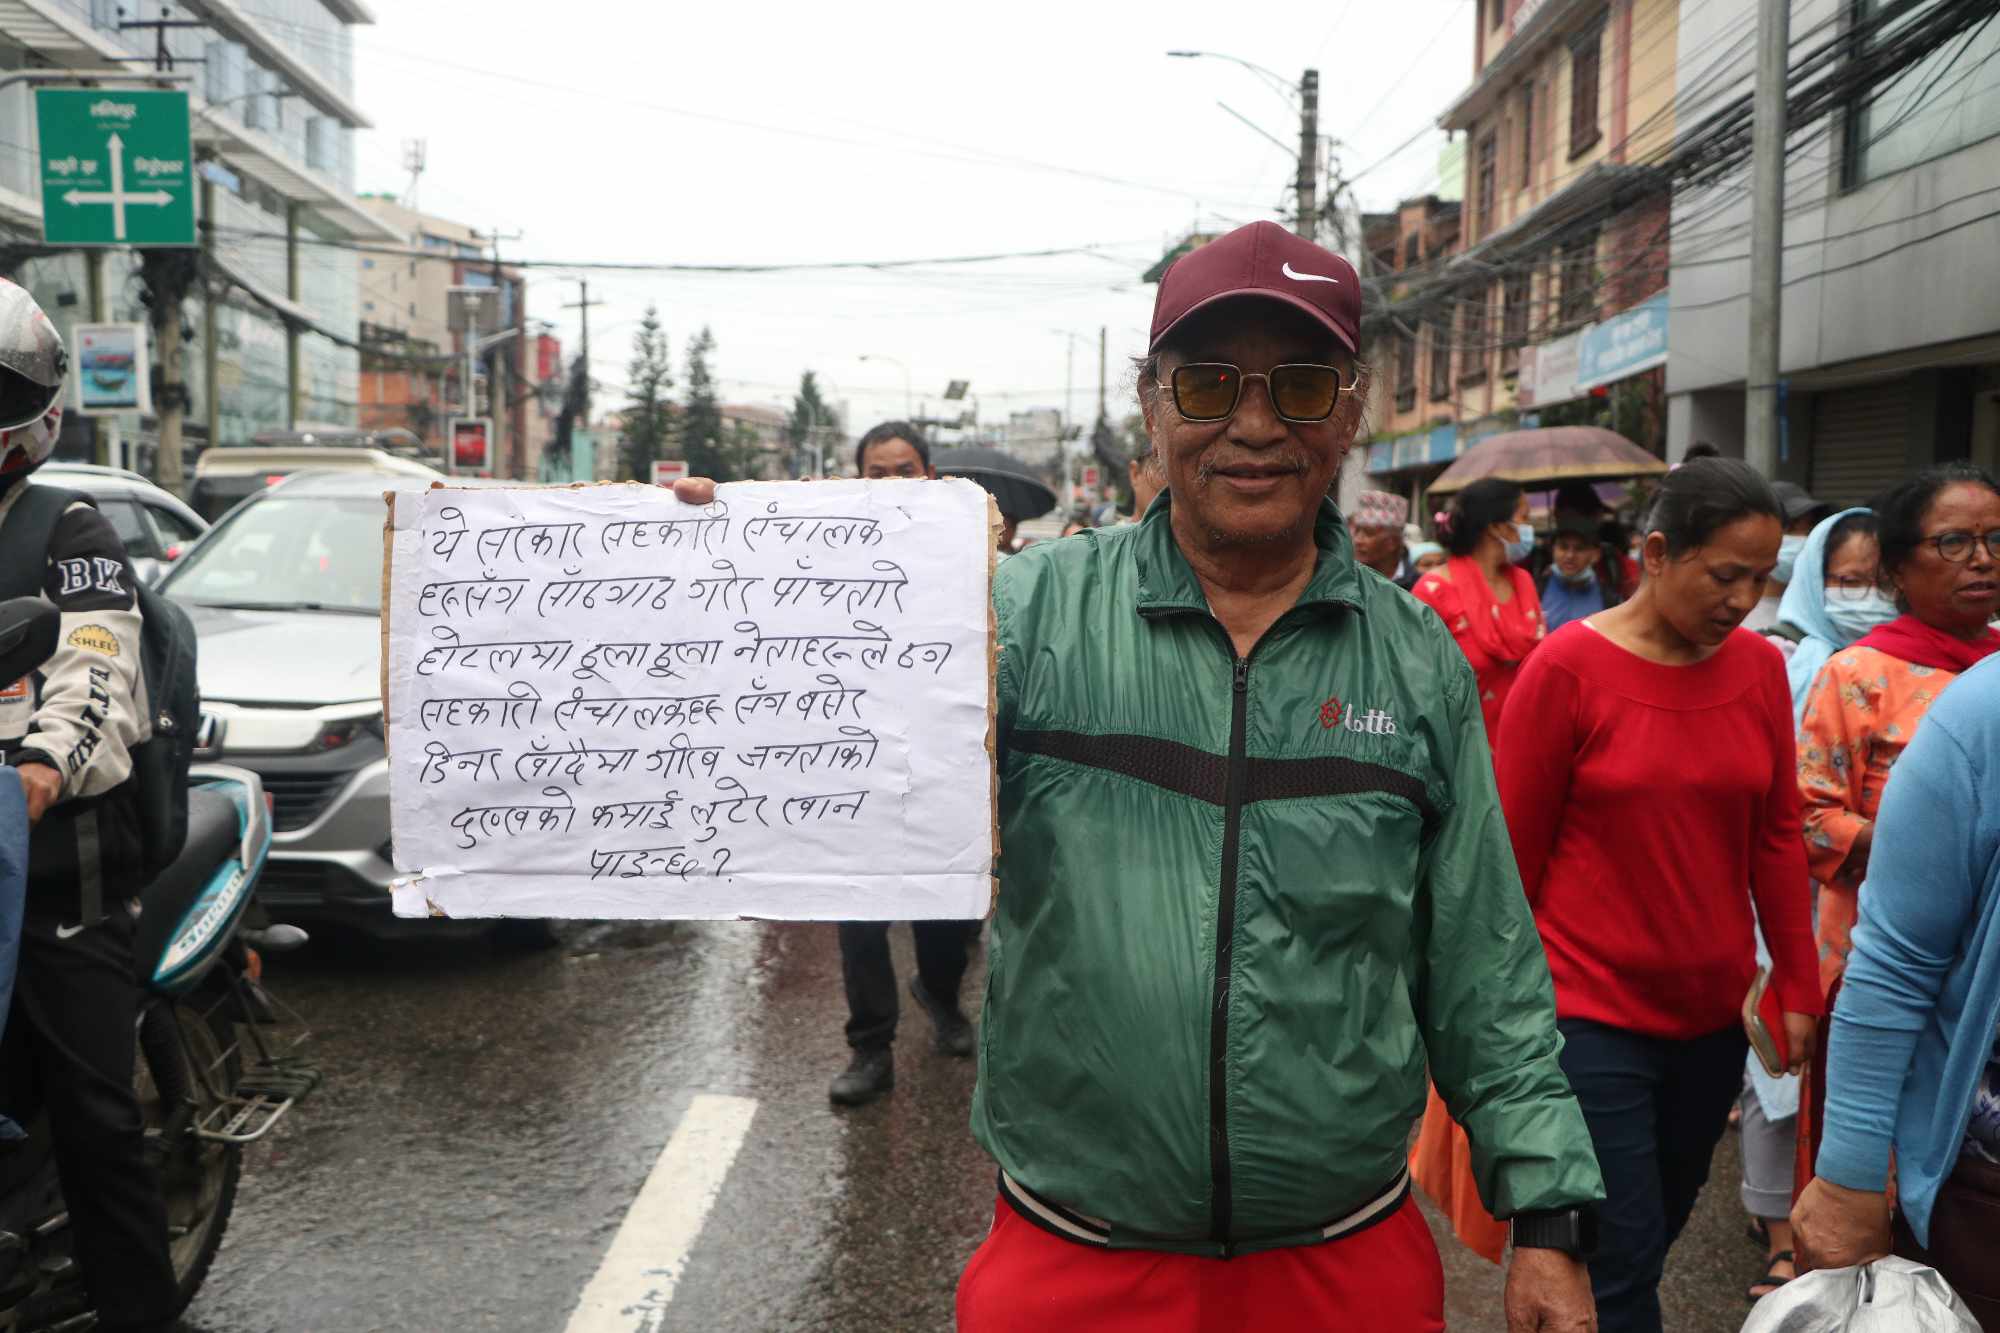 ललितपुर
BK
SHLEL
ये सरकार सहकारी संचालक
हरूसँग साँठगाठ गरेर पाँचतारे
होटलमा ठूलाठूला नेताहरूले ठग
सहकारी संचालकहरू सँग बसेर
डिनर खाँदैमा गरिब जनताको
दुःखको कमाई लुटेर खान
पाइन्छ?
lotto